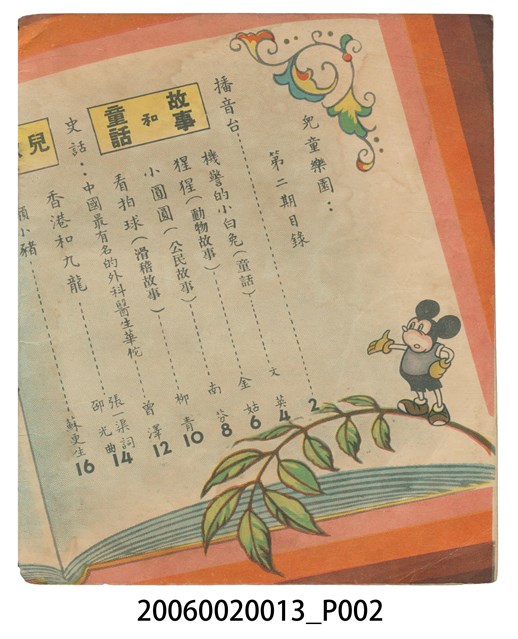 兒童樂園：
第二期目錄
播音台 2
故事和童話
機警的小白兔（童話） 文英 4
猩猩（動物故事） 金姑 6
小圓圓（公民故事） 南 8
看拍球（滑稽故事） 柳青 10
史話：中國最有名的外科醫生華佗 曾澤 12
香港和九龍 張一渠詞 邵光曲 14
兒
小豬 蘇更生 16
20060020013_P002